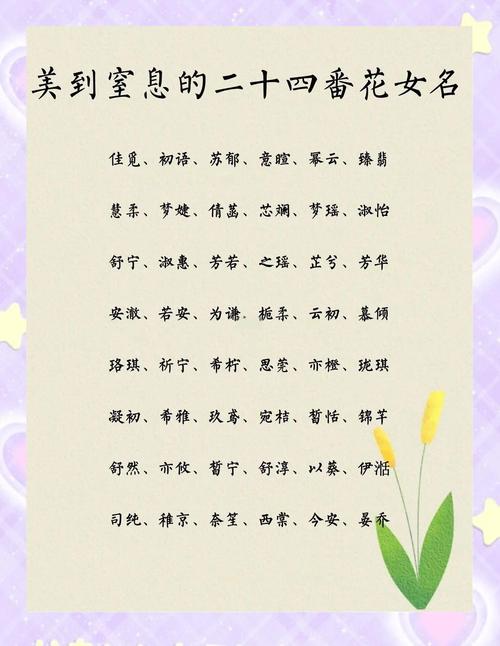 美到窒息的二十四番花女名
佳觅、初语、苏郁、意暄、幂云、臻翡
慧柔、梦婕、倩菡、芯斓、梦瑶、淑怡
舒宁、淑惠、芳若、之瑶、芷兮、芳华
安澈、若安、为谦、栀柔、云初、慕倾
珞琪、祈宁、希柠、思莞、亦橙、珑琪
凝初、希雅、玖鸢、宛桔、皙恬、锦芊
舒然、亦攸、皙宁、舒淳、以葵、伊湉
司纯、稚京、奈笙、西棠、今安、晏乔